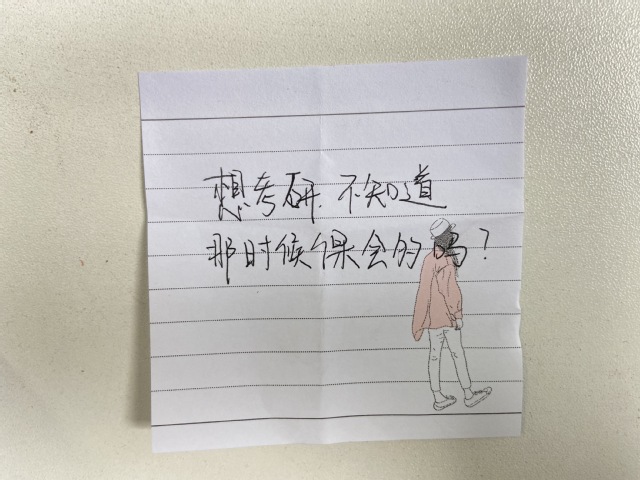 想考研,不知道
那时候课会的吗?